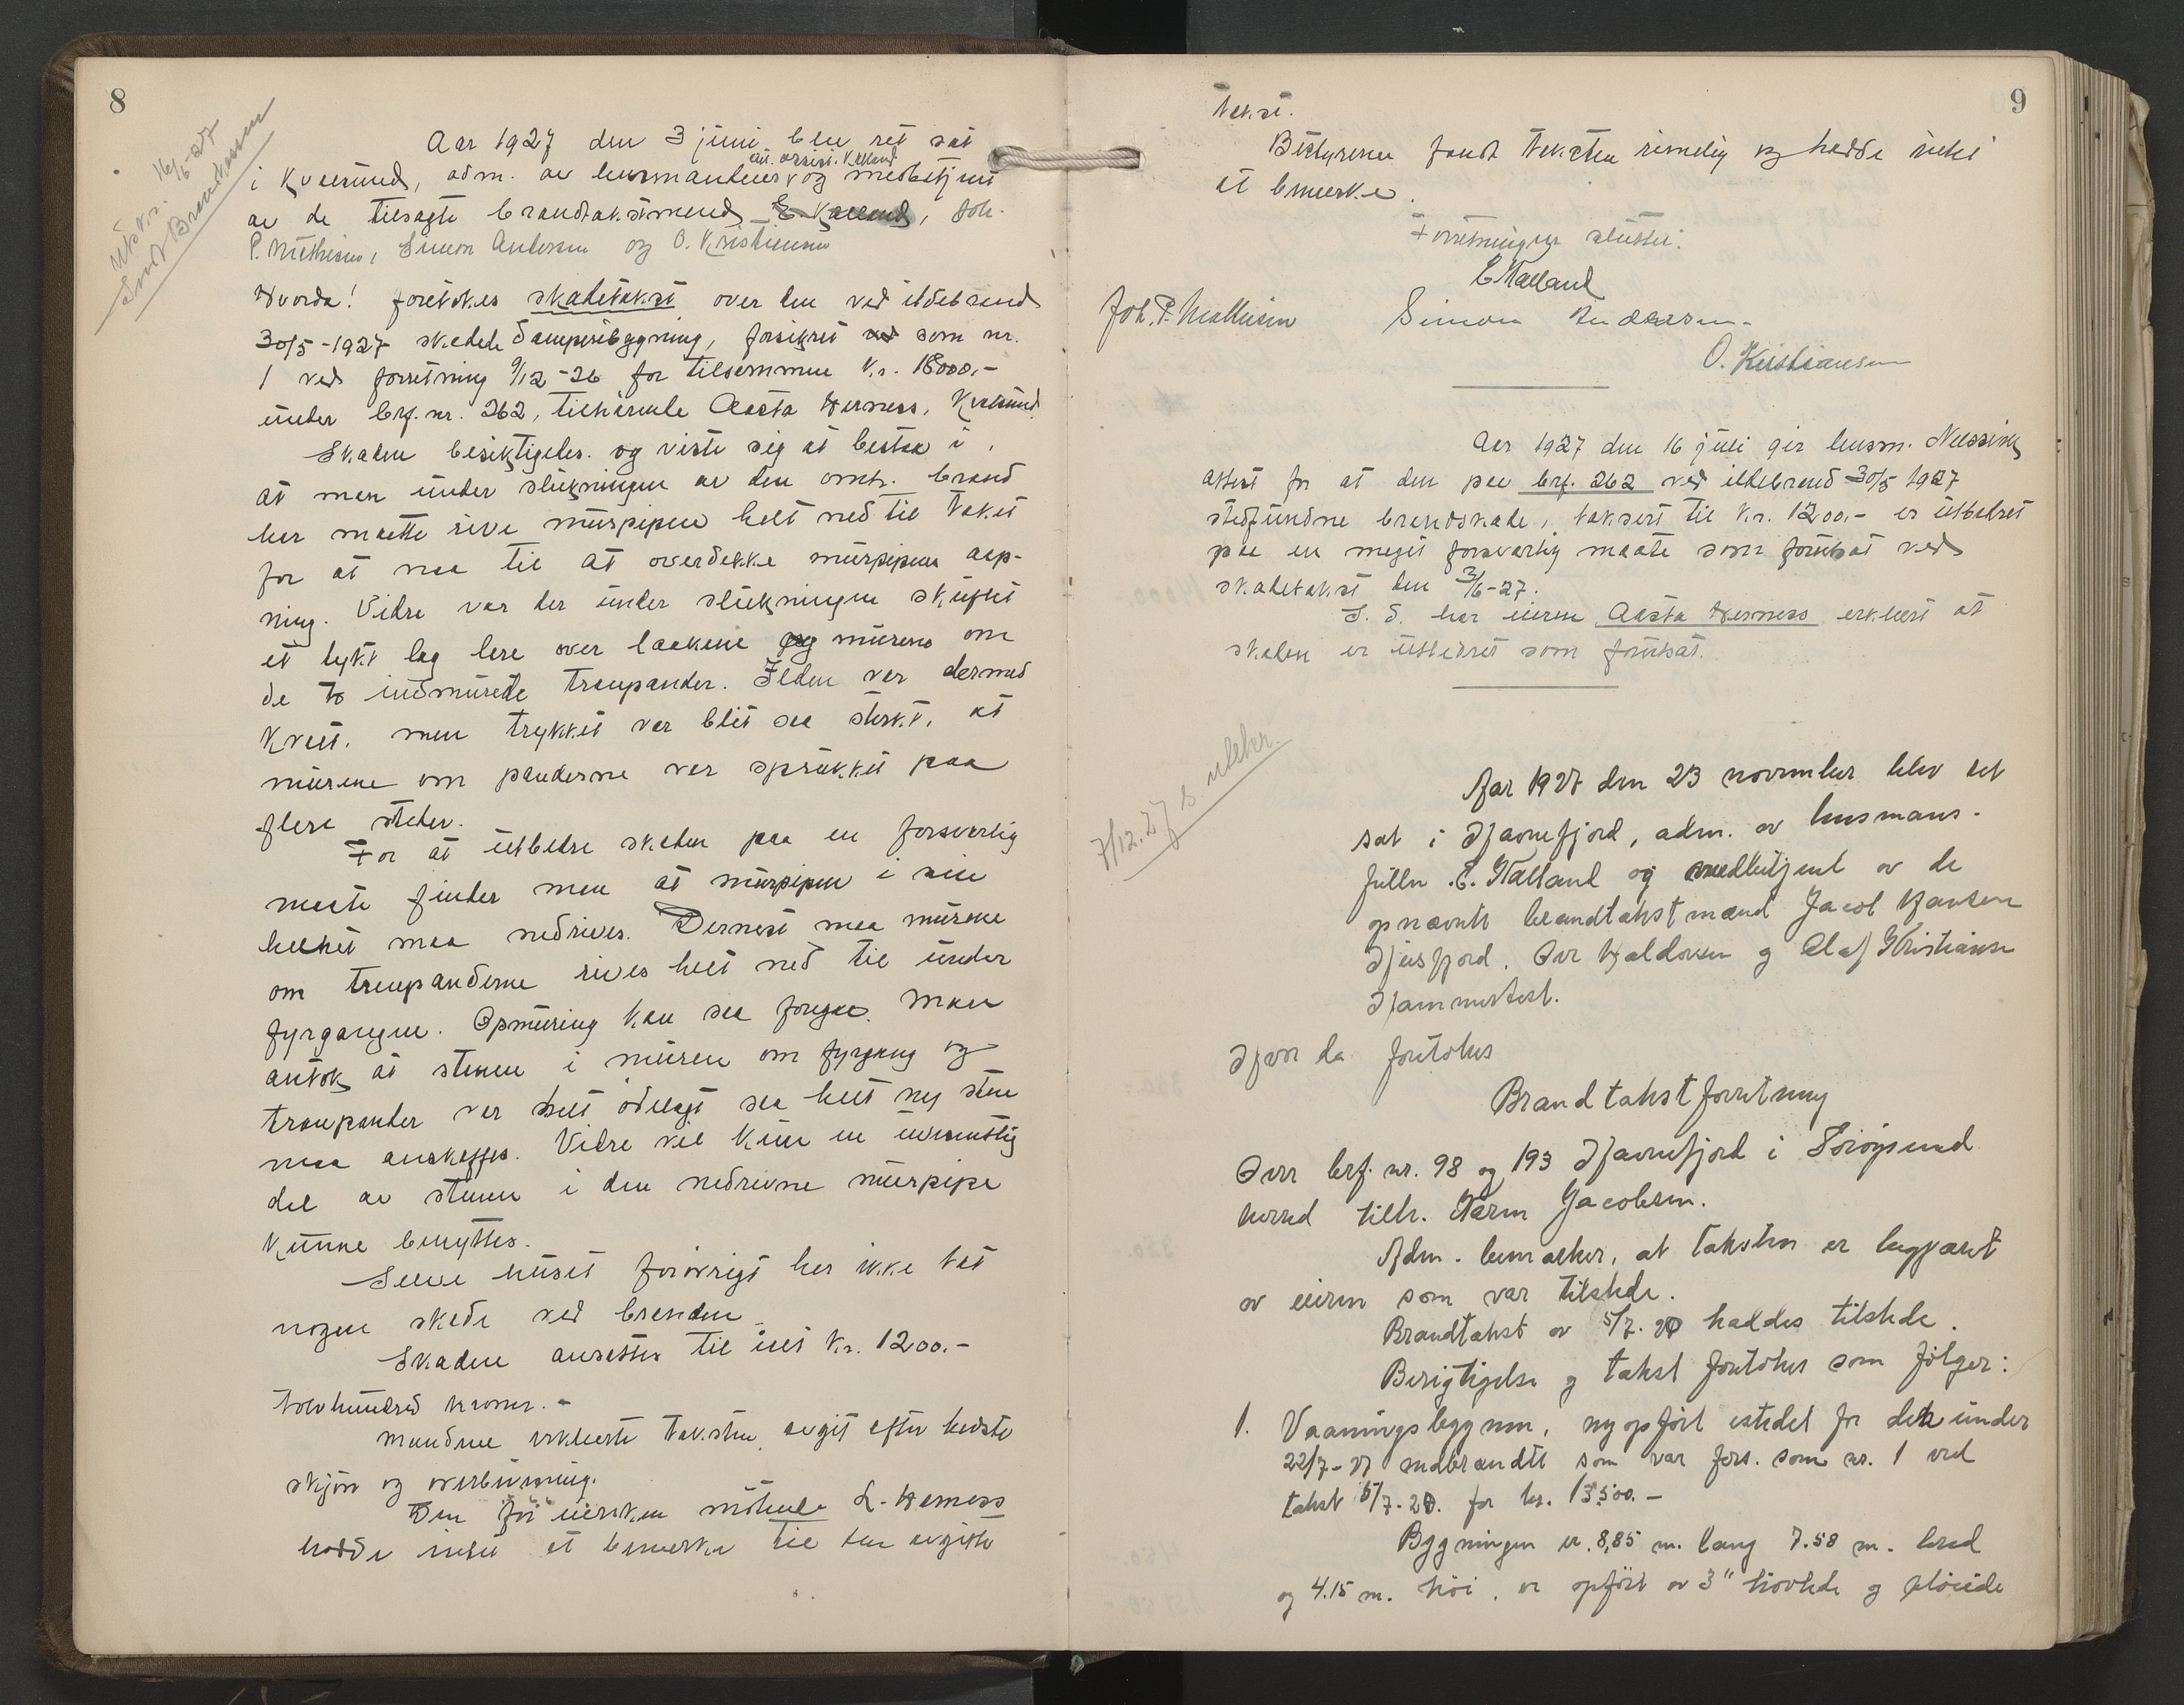 8
Utskr. 16/6-27
Sendt Brandkassen
Aar 1927 den 3 juni blev ret sat
i Kvalsund, adm. av lensmanden og medbetjent
av de tilsagte brandtakstmænd E. Kalland, Joh.
P. Mathisen, Simon Andersen og O. Kristiansen
Hvorda! foretokes skadetakst over den ved ildebrand
30/5-1927 skadede damperibygning, forsikret ved som nr.
1 ved forretning 9/12-26 for tilsammen kr. 18000.-
under brf. nr. 262, tilhørende Aasta Herness, Kvalsund
Skaden besiktigedes og viste sig at bestaa i,
at man under slukningen av den omh. brand
her maatte rive murpipen helt ned til taket
for at naa til at overdekke murpipens aap-
ning. Vidre var der under slukningen skuflet
et tykt lag lere over laakene og murene om
de to indmurede tranpander. Ilden var dermed
kvelt, men trykket var blit saa sterkt, at
murene om panderne var sprukket paa
flere steder.
For at utbedre skaden paa en forsvarlig
maate finder man at murpipen i sin
helhet maa nedrives. Dernest maa murene
om tranpanderne rives helt ned til under
fyrgangene. Opmuring kan saa foregaa. Man
antok at stenen i muren om fyrgang og
tranpander var helt ødelagt saa helt ny sten
maa anskaffes. Vidre vil kun en uvæsentlig
del av stenen i den nedrevne murpipe
kunne benyttes.
Selve huset forøvrigt har ikke tat
nogen skade ved branden
Skaden ansattes til ialt kr. 1200.-
tolvhundred kroner.-
Mændene erklærte taksten avgit efter bedste
skjøn og overbevisning.
Den for eiersken møtende L. Herness
hadde intet at bemerke til den avgitte
9
takst.
Bestyreren fandt taksten rimelig og hadde intet
at bemerke.
Forretningen sluttet.
E Kalland
Joh. P. Mathisen Simon Andersen.
O. Kristiansen
Aar 1927 den 16 juli gir lensm. Nilssink
attest for at den paa brf. 262 ved ildebrand 30/5 1927
stedfundne brandskade, taksert til kr. 1200.- er utbedret
paa en meget forsvarlig maate som forutsat ved
skadetakst den 3/6-27.
S. d. har eieren Aasta Herness erklært at
skaden er utbedret som forutsat.
7/12.27 s. utskr.
Aar 1927 den 23 november blev ret
sat i Havnefjord, adm. av lensmans-
fullm. E. Kalland og medbetjent av de
opnævnte brandtakstmænd Jacob Hansen
Iver Haldorsen og Olaf Kristiansen
Hammerfest.
Hvor da foretokes
Brandtakstforretning
Over brf. nr. 98 og 193 Havnefjord i Sørøysund
herred tilh. Jacobsen.
Adm. bemærker, at taksten er begjæret
av eieren som var tilstede.
Brandtakst av 5/7.20 haddes tilstede.
Berigtigelse og takst foretokes som følger:
1. Vaaningsbygnin, nyopført istedet for den under
22/7-27 nedbrændte som var fors. som nr. 1 ved
takst 5/7.20. for kr. 13500.-
Bygningen er 8,85 m. lang 7.58 m. bred
og 4.15 m. høi, er opført av 3" høvlede og pløiede